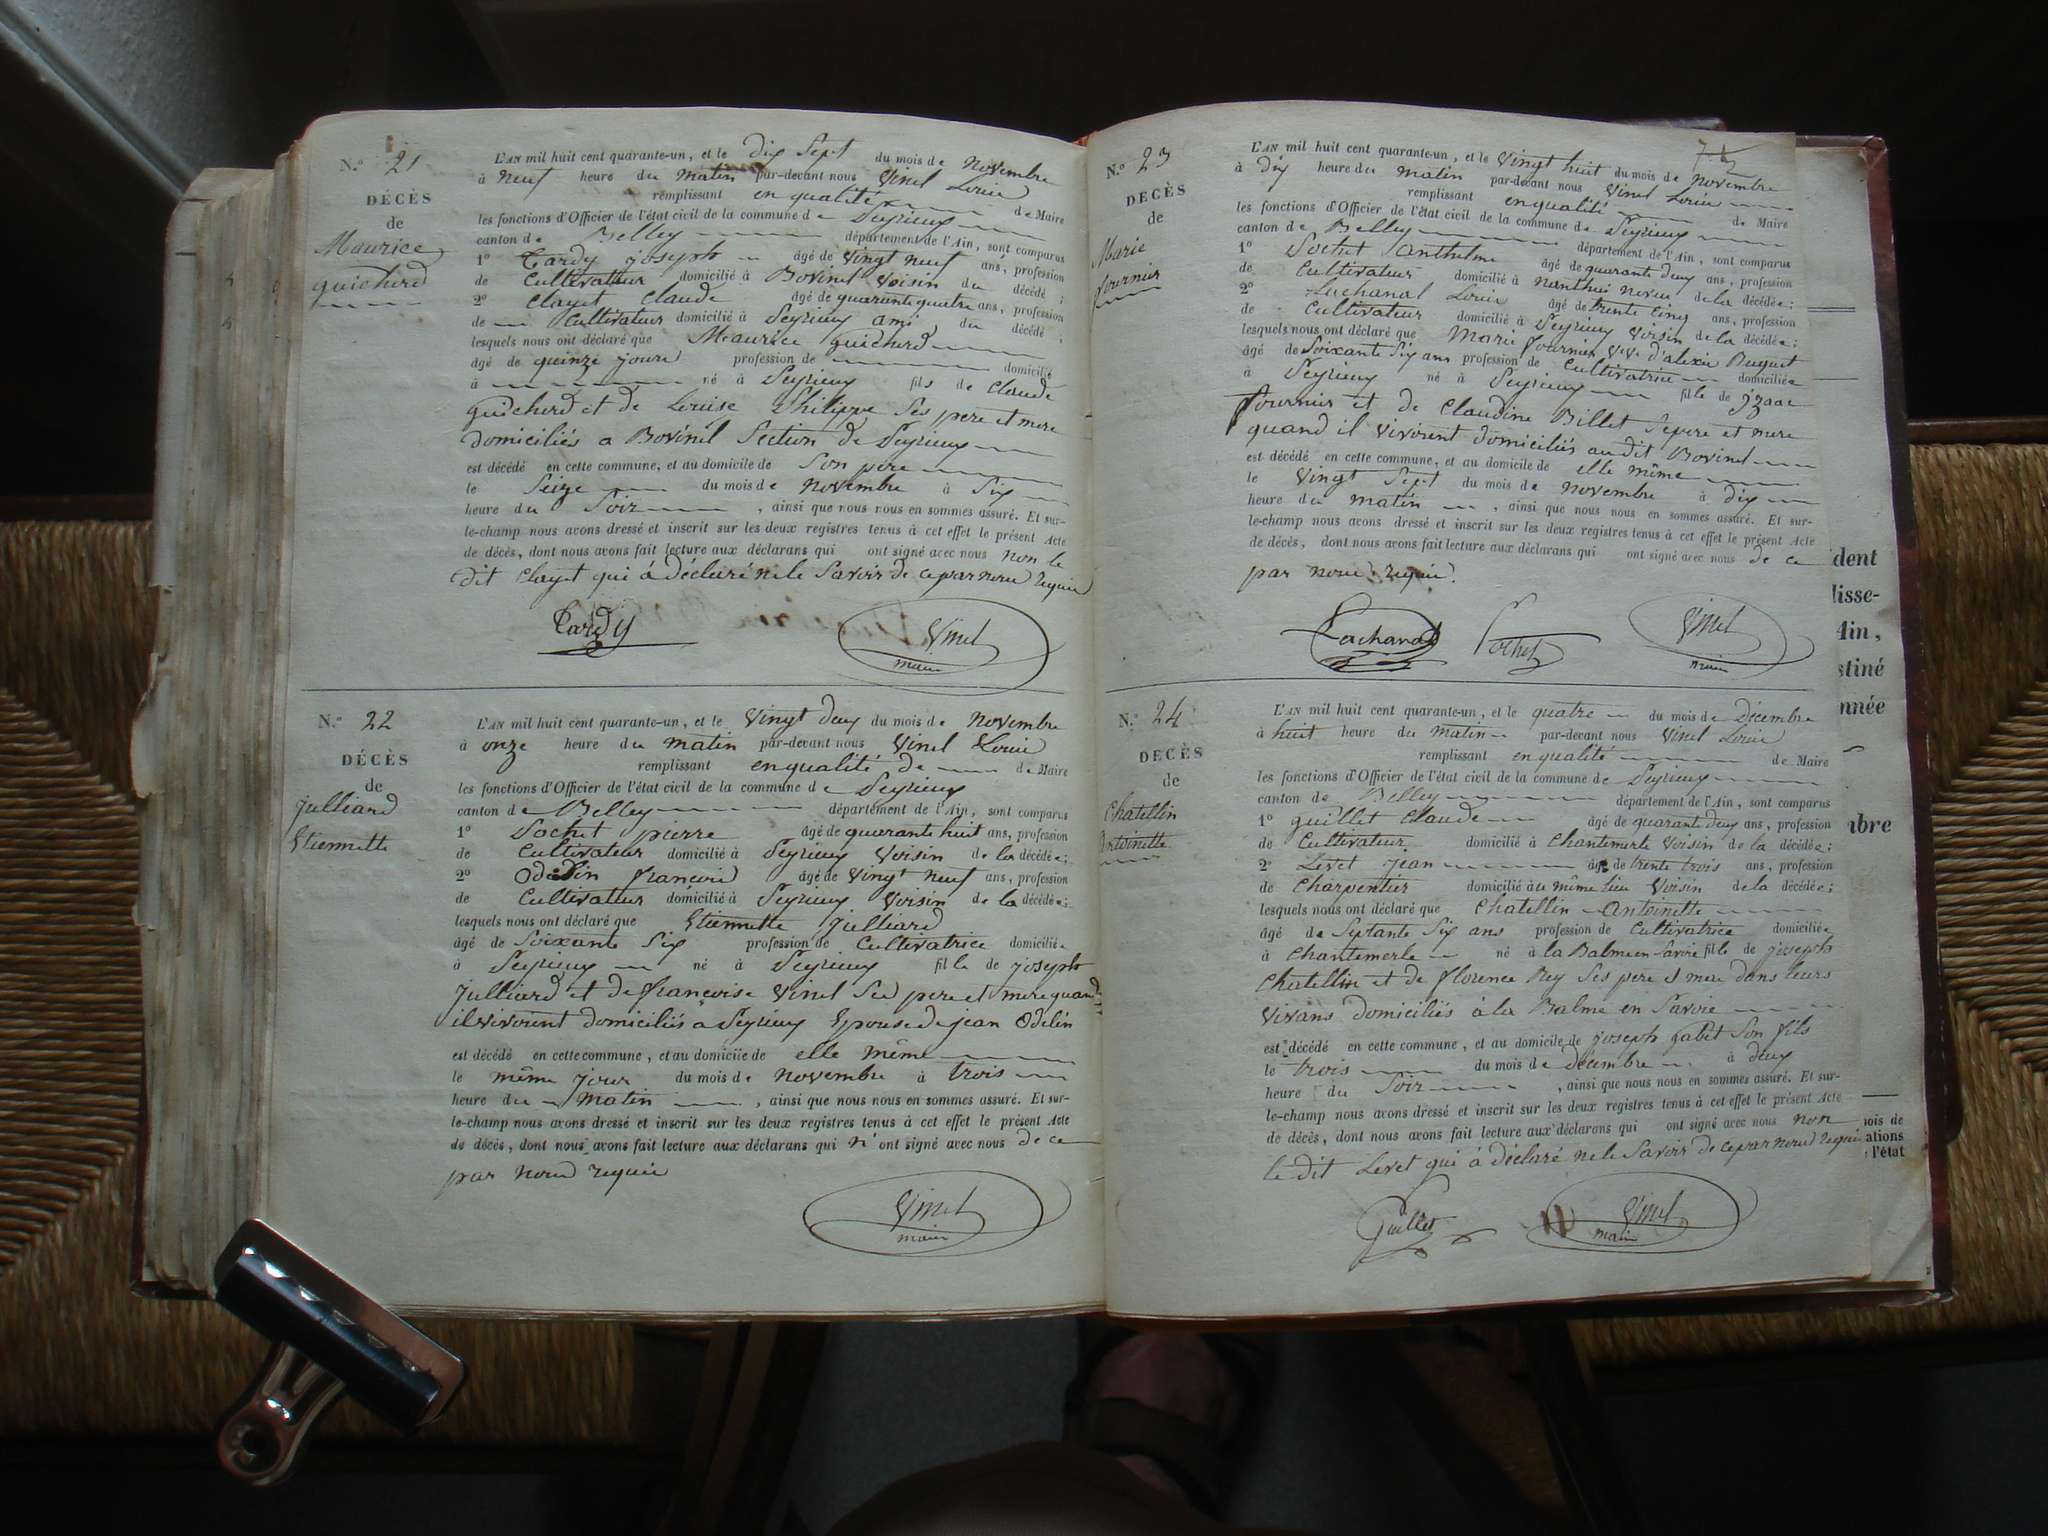 N.° 21
DÉCÈS
de
Maurice
guicherd
L'AN mil huit cent quarante-un, et le dix sept du mois de novembre
à neuf heure du matin par-devant nous Vinel Louis
remplissant en qualité de Maire
les fonctions d'Officier de l'état civil de la commune de Peyrieux
canton de Belley département de l'Ain, sont comparus
1° Tardy joseph âgé de vingt neuf ans, profession
de Cultivateur domicilié à Bovinel voisin du décédé ;
2° Clayet Claude âgé de quarante quatre ans, profession
de Cultivateur domicilié à Peyrieux ami du décédé ;
lesquels nous ont déclaré que Maurice guicherd
âgé de quinze jours profession de domicilié
à né à Peyrieux fils de Claude
guicherd et de Louise Philippe Ses pere et mere
domiciliés a Bovinel Section de Peyrieux
est décédé en cette commune, et au domicile de Son pere
le Seize du mois de novembre à Six
heure du Soir , ainsi que nous nous en sommes assuré. Et sur-
le-champ nous avons dressé et inscrit sur les deux registres tenus à cet effet le présent Acte
de décès, dont nous avons fait lecture aux déclarans qui ont signé avec nous non le
dit Clayet qui à déclaré ne le Savoir de ce par nous requis
Tardy
Vinel
maire
N.° 22
DÉCÈS
de
Julliard
Etiennette
L'AN mil huit cent quarante-un, et le vingt deux du mois de novembre
à onze heure du matin par-devant nous Vinel Louis
remplissant en qualité de de Maire
les fonctions d'Officier de l'état civil de la commune de Peyrieux
canton de Belley département de l'Ain, sont comparus
1° Pochet pierre âgé de quarante huit ans, profession
de Cultivateur domicilié à Peyrieux voisin de la décédée;
2° Odelin françois âgé de vingt neuf ans, profession
de Cultivateur domicilié à Peyrieux voisin de la décédée;
lesquels nous ont déclaré que Etiennette Julliard
âgé de Soixante Six profession de Cultivatrice domiciliée
à Peyrieux né à Peyrieux fille de joseph
Julliard et de françoise Vinel Ses pere et mere quand
il vivoient domiciliés a Peyrieux Epouse de jean Odelin
est décédé en cette commune, et au domicile de elle même
le même jour du mois de novembre à trois
heure du matin , ainsi que nous nous en sommes assuré. Et sur-
le-champ nous avons dressé et inscrit sur les deux registres tenus à cet effet le présent Acte
de décès, dont nous avons fait lecture aux déclarans qui n'ont signé avec nous de ce
par nous requis
Vinel
maire
N.° 23
DÉCÈS
de
Marie
fournier
L'AN mil huit cent quarante-un, et le vingt huit du mois de novembre
à dix heure du matin par-devant nous Vinel Louis
remplissant en qualité de Maire
les fonctions d'Officier de l'état civil de la commune de Peyrieux
canton de Belley département de l'Ain, sont comparus
1° Pochet Anthelme âgé de quarante deux ans, profession
de Cultivateur domicilié à nanthui neveu de la décédée;
2° Lachanal Louis âgé de trente Cinq ans, profession
de Cultivateur domicilié à Peyrieux voisin de la décédée;
lesquels nous ont déclaré que Marie fournier Vve d'alexis Buguet
âgé de Soixante Six ans profession de Cultivatrice domiciliée
à Peyrieux né à Peyrieux fille de jzaac
fournier et de Claudine Billet Se pere et mere
quand il vivoient domiciliés au dit Bovinel
est décédé en cette commune, et au domicile de elle même
le vingt Sept du mois de novembre à dix
heure du matin , ainsi que nous nous en sommes assuré. Et sur-
le-champ nous avons dressé et inscrit sur les deux registres tenus à cet effet le présent Acte
de décès, dont nous avons fait lecture aux déclarans qui ont signé avec nous de ce
par nous requis.
Lachanal Pochet Vinel
maire
N.° 24
DÉCÈS
de
Chatellin
Antoinette
L'AN mil huit cent quarante-un, et le quatre du mois de Décembre
à huit heure du matin par-devant nous Vinel Louis
remplissant en qualité de Maire
les fonctions d'Officier de l'état civil de la commune de Peyrieux
canton de Belley département de l'Ain, sont comparus
1° guillet Claude âgé de quarante deux ans, profession
de Cultivateur domicilié à Chantemerle voisin de la décédée;
2° Levet jean âgé de trente trois ans, profession
de Charpentier domicilié au même lieu voisin de la décédée;
lesquels nous ont déclaré que Chatellin Antoinette
âgé de Septante Six ans profession de Cultivatrice domiciliée
à Chantemerle né à la Balme en Savoie fille de joseph
Chatellin et de florence Rey Ses pere et mere dans leurs
vivans domiciliés à la Balme en Savoie
est décédé en cette commune, et au domicile de joseph gabet Son fils
le trois du mois de décembre à deux
heure du Soir , ainsi que nous nous en sommes assuré. Et sur-
le-champ nous avons dressé et inscrit sur les deux registres tenus à cet effet le présent Acte
de décès, dont nous avons fait lecture aux déclarans qui ont signé avec nous non
le dit Levet qui à déclaré ne le Savoir de ce par nous requis
Guillet
Vinel
maire
dent
lisse-
Ain,
stiné
nnée
mbre
mois de
ations
l'état